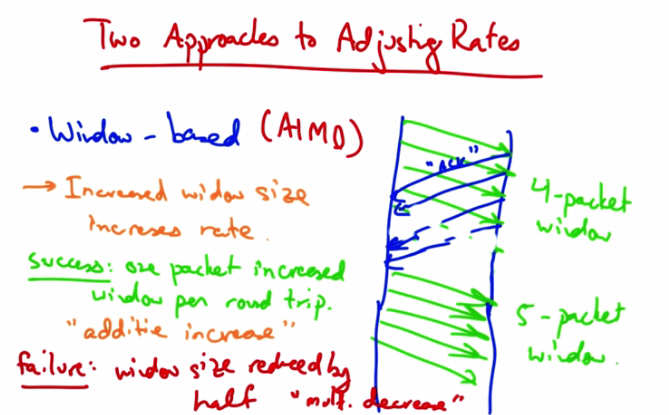 Two Approaches to Adjustig Rates
• Window-based (AIMD)
→ Increased widow size
increses rate.
success: one packet increased
window per round trip.
"additie increase"
failure: widow size reduced by
half "mult. decrease"
"ACK"
4-packet
window
5-packet
window.